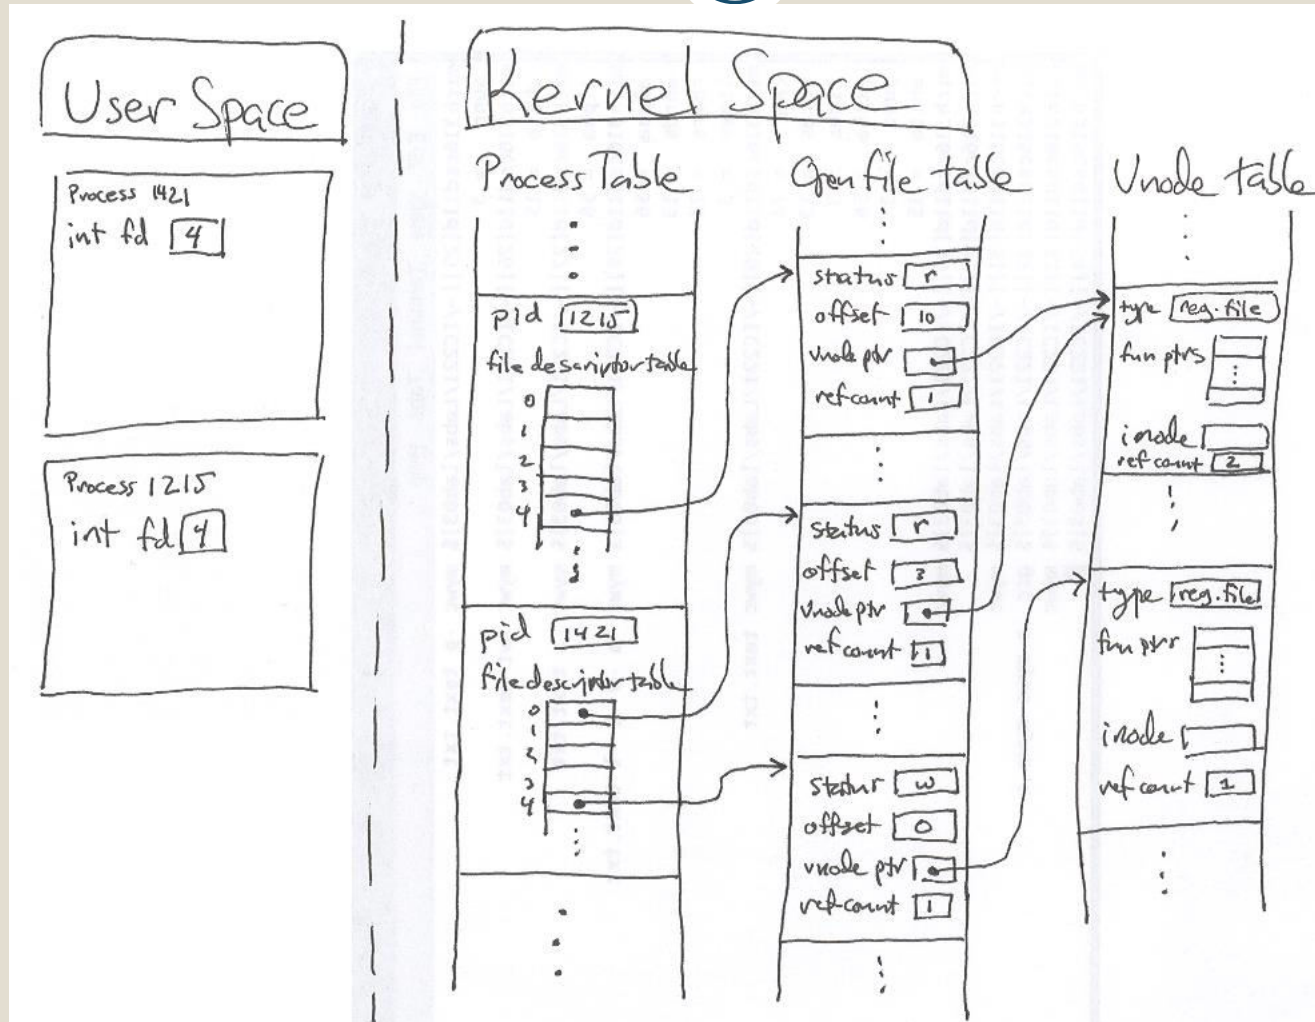 User Space
Kernel Space
Process 1421
int fd 4
Process 1215
int fd 4
Process Table
pid 1215
file descriptor table
0
1
2
3
4
pid 1421
file descriptor table
0
1
2
3
4
Open file table
status r
offset 10
vnode ptr
ref count 1
status r
offset 3
vnode ptr
ref count 1
status w
offset 0
vnode ptr
ref-count 1
Vnode table
type reg. file
fun ptrs
inode
ref count 2
type reg. file
fun ptrs
inode
ref count 1